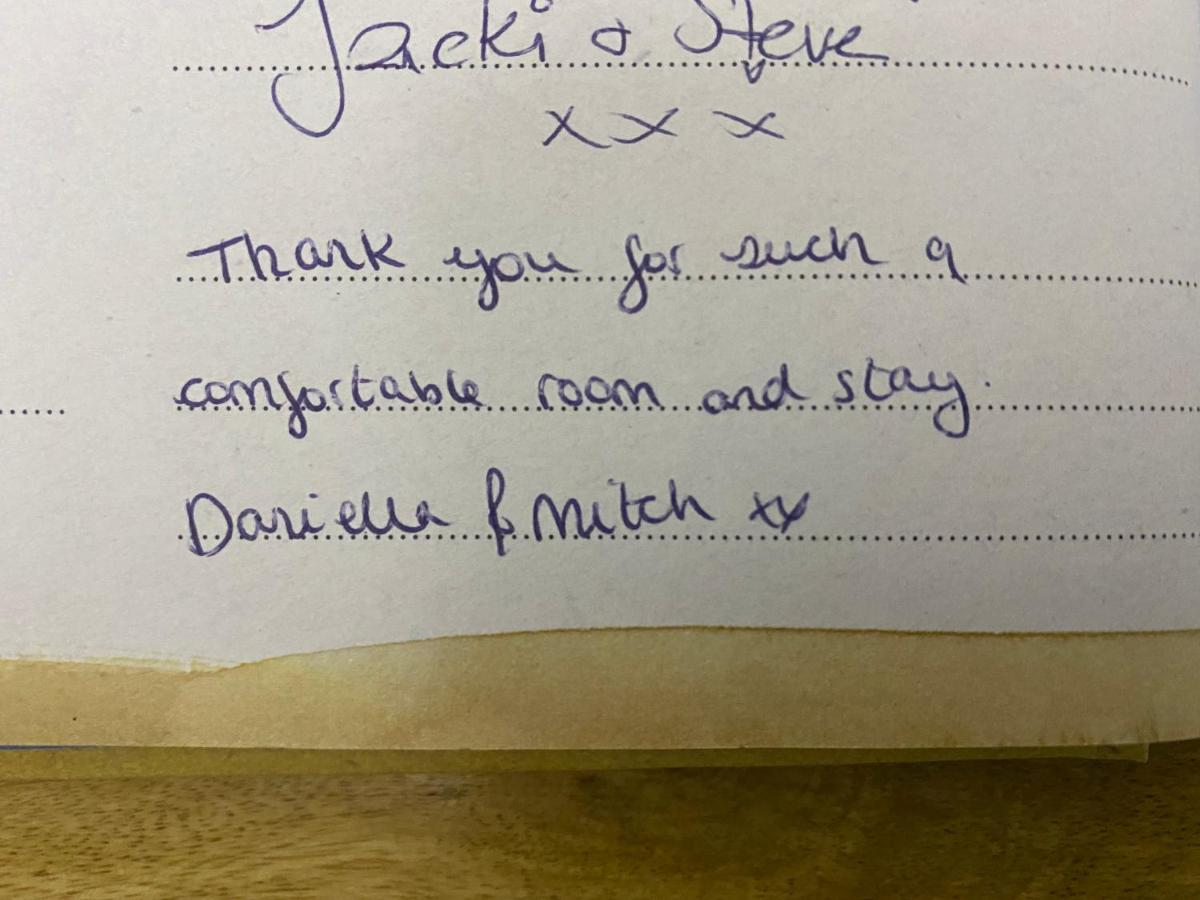 Jacki & Steve
x x x
Thank you for such a
comfortable room and stay.
Danielle & Mitch xx